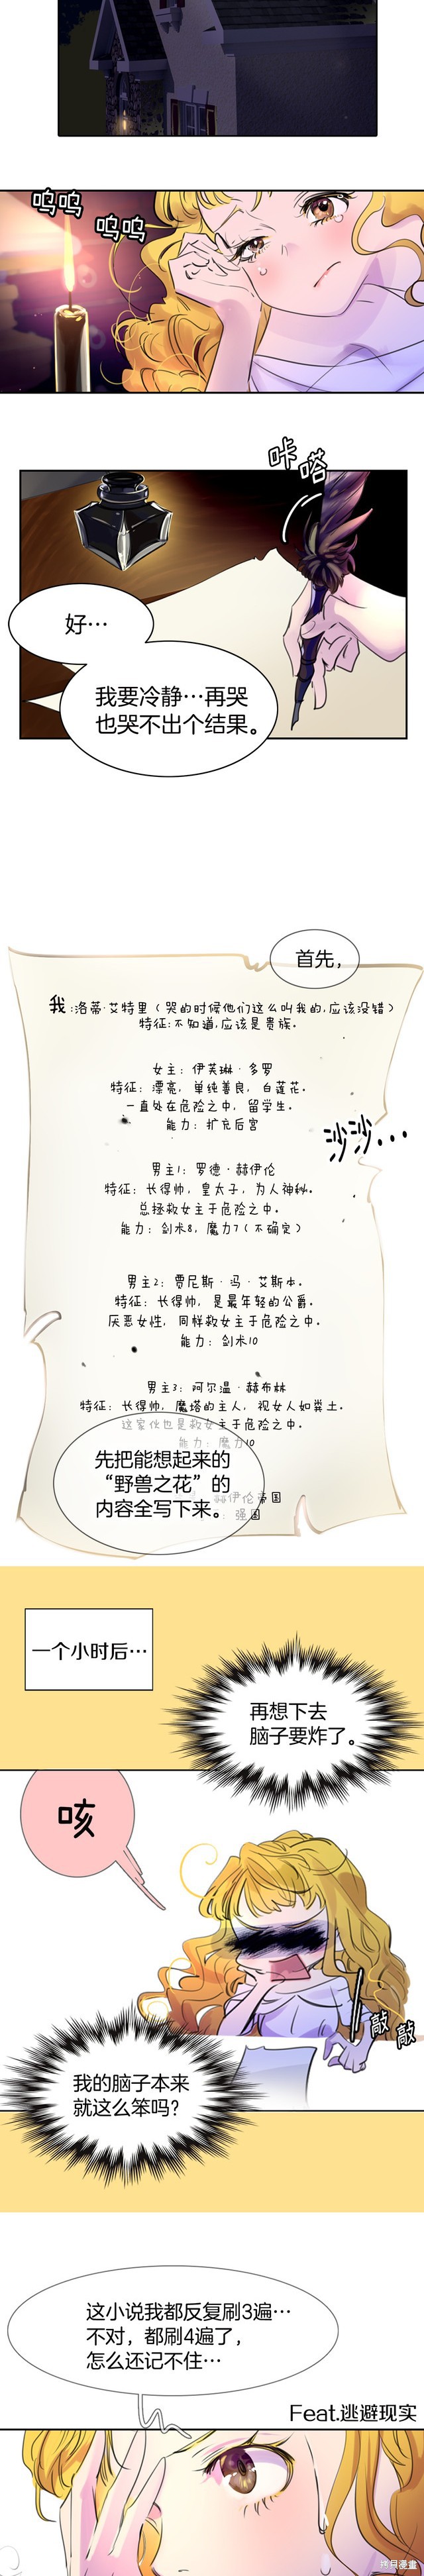 呜呜
呜呜
咔嗒
好…
我要冷静…再哭
也哭不出个结果。
首先，
我:洛蒂·艾特里（哭的时候他们这么叫我的,应该没错）
特征:不知道,应该是贵族。
女主：伊芙琳·多罗
特征：漂亮，单纯善良，白莲花。
一直处在危险之中，留学生。
能力：扩充后宫
沙沙…
男主1：罗德·赫伊伦
特征：长得帅，皇太子，为人神秘。
总拯救女主于危险之中。
能力：剑术8，魔力7（不确定）
男主2：贾尼斯·冯·艾斯本。
特征：长得帅，是最年轻的公爵。
厌恶女性，同样救女主于危险之中。
能力：剑术10
男主3：阿尔温·赫布林
特征：长得帅，魔塔的主人，视女人如粪土。
这家伙也是救女主于危险之中。
能力：魔力10
先把能想起来的
“野兽之花”的
内容全写下来。
赫伊伦帝国
：强国
一个小时后…
再想下去
脑子要炸了。
咳
敲
敲
我的脑子本来
就这么笨吗？
这小说我都反复刷3遍…
不对，都刷4遍了，
怎么还记不住…
Feat.逃避现实
拷貝漫畫